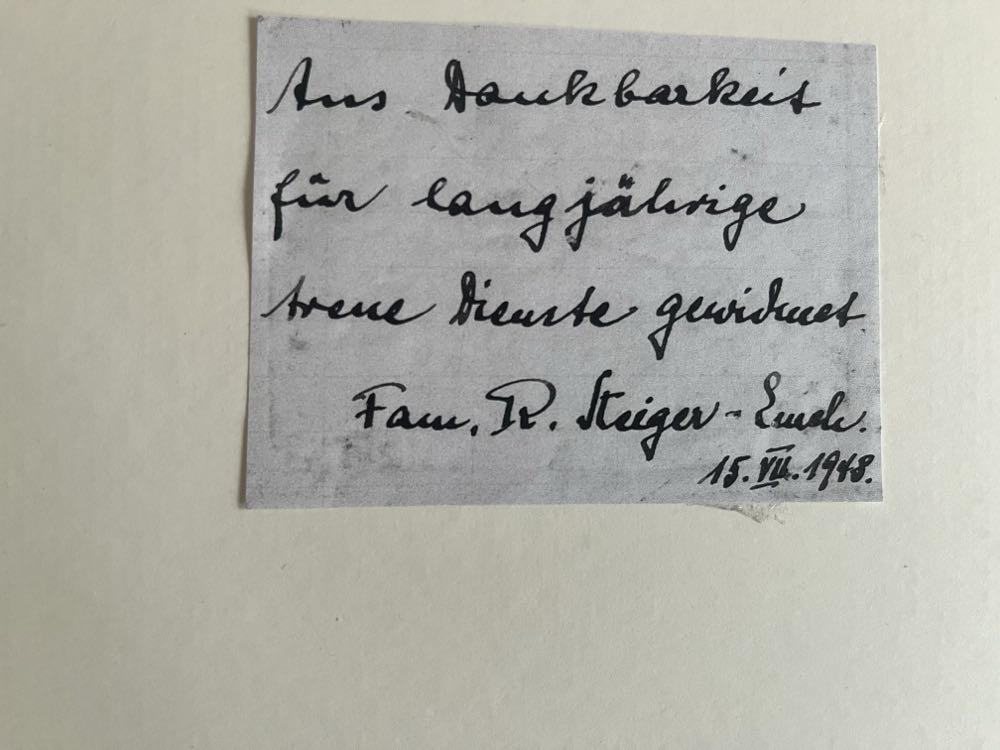 Aus Dankbarkeit
für langjährige
treue Dienste gewidmet
Fam. R. Steiger-Emch.
15. VII. 1948.